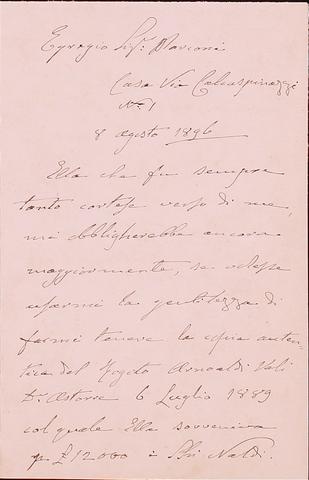 Egregio Sig.r Marconi
Casa Via Calcaspinazzi
N.o 1
8 agosto 1896
Ella che fu sempre
tanto cortese verso di me,
mi obbligherebbe ancora
maggiormente, se volesse
usarmi la gentilezza di
farmi tenere la copia auten-
tica del Rogito Arnoaldi Veli
D.r Astorre 6 Luglio 1889
col quale Ella sovveniva
£12000 i Naldi.